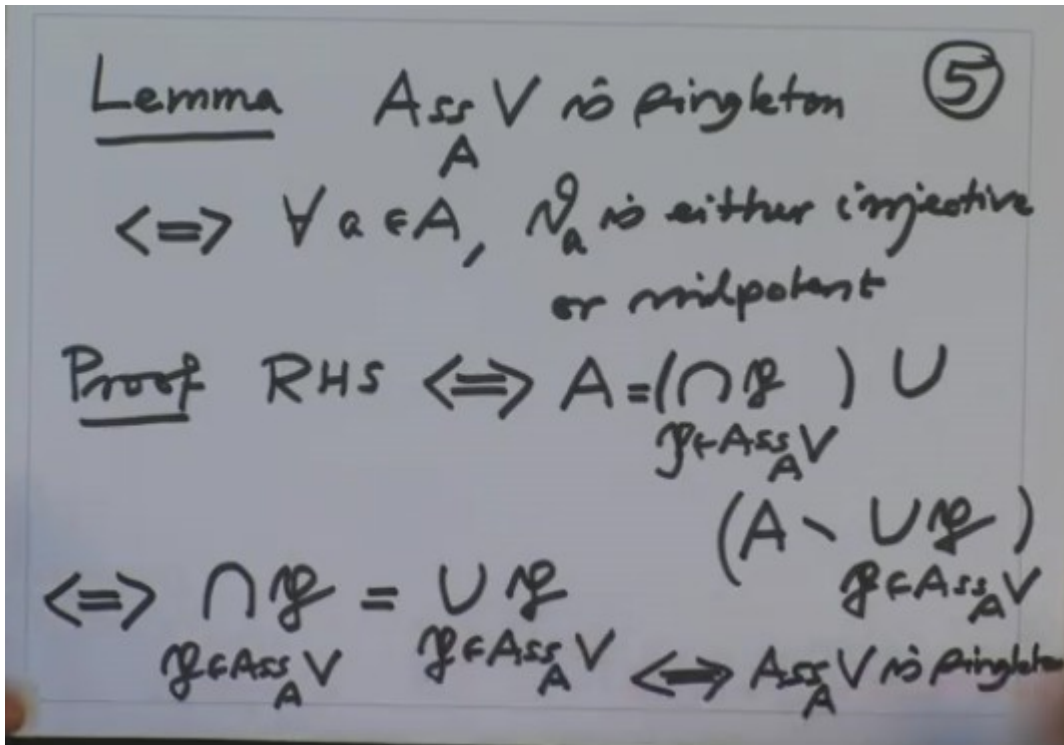 Lemma Ass_A V is singleton ⑤
<=> ∀ a ∈ A, ϑ_a is either injective
or nilpotent
Proof RHS <=> A = (∩ 𝔭 ) ∪
𝔭 ∈ Ass_A V
(A \ ∪ 𝔭 )
𝔭 ∈ Ass_A V
<=> ∩ 𝔭 = ∪ 𝔭
𝔭 ∈ Ass_A V 𝔭 ∈ Ass_A V <=> Ass_A V is singleton